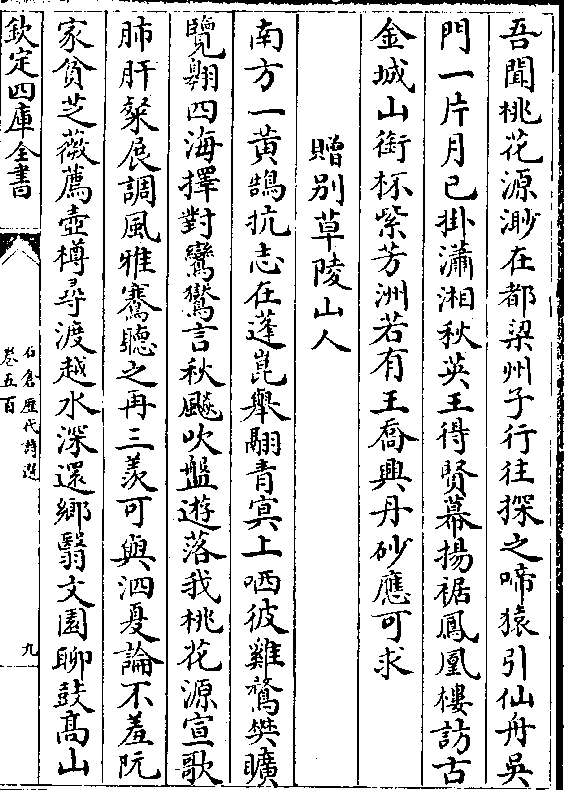 吾聞桃花源渺在都梁州子行往探之啼猿引仙舟吳
門一片月已掛瀟湘秋英王得賢幕揚裾鳳凰樓訪古
金城山銜杯紫芳洲若有王喬興丹砂應可求
贈别草陵山人
南方一黃鵠抗志在蓬崑舉翮青冥上哂彼雞鶩樊曠
覽翺四海擇對鸞鷟言秋飈吹盤遊落我桃花源宣歌
肺肝粲展調風雅騫聽之再三羨可與泗夏論不羞阮
家貧芝薇薦壺樽尋渡越水深還鄉翳文園聊鼓髙山
欽定四庫全書
石倉歷代詩選
卷五百
九